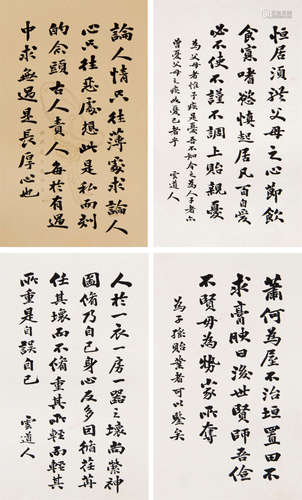 恒居須於父母之心節飲
食寡嗜慾慎起居凡百自愛
必不使不謹不調上貽親憂
為父母者惟子疾是憂吾不知今之為人子者亦
曾憂父母之疾如憂己者乎 雲道人
論人情只往薄處求論人
心只往惡處想此是私而刻
的念頭古人責人每於有過
中求無過是長厚心也
蕭何為屋不治垣置田不
求膏腴曰後世賢師吾儉
不賢毋為勢家所奪
為子孫貽業者可以鑒矣
人於一衣一房一器之壞尚縈神
圖脩乃自己身心反多因循苒
任其壞而不脩重其所輕而輕其
所重是自誤自己 雲道人